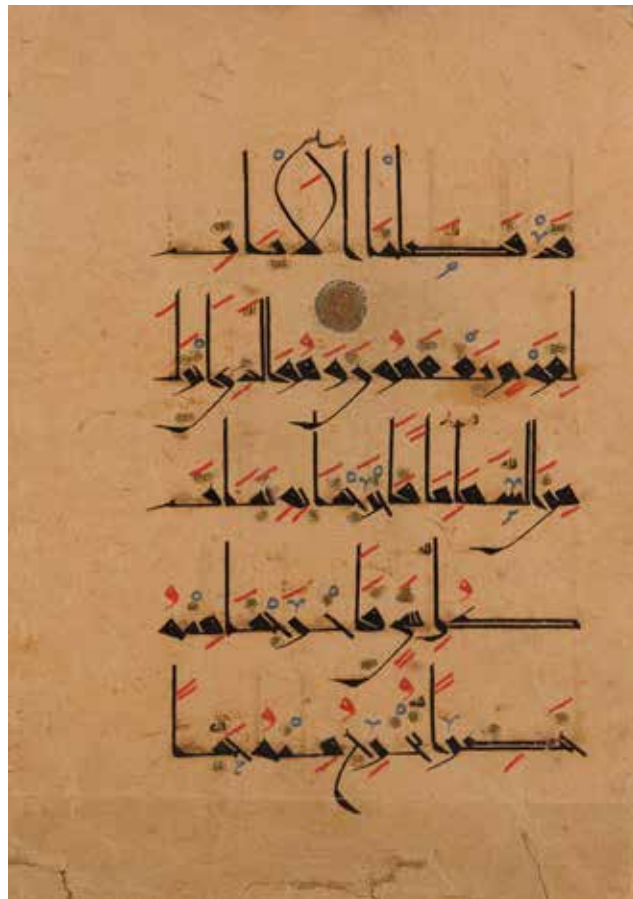 قَدْ فَصَّلْنَا الْآيَاتِ
لِقَوْمٍ يَفْقَهُونَ وَهُوَ الَّذِي أَنْزَلَ
مِنَ السَّمَاءِ مَاءً فَأَخْرَجْنَا بِهِ نَبَاتَ
كُلِّ شَيْءٍ فَأَخْرَجْنَا مِنْهُ
خَضِرًا نُخْرِجُ مِنْهُ حَبًّا